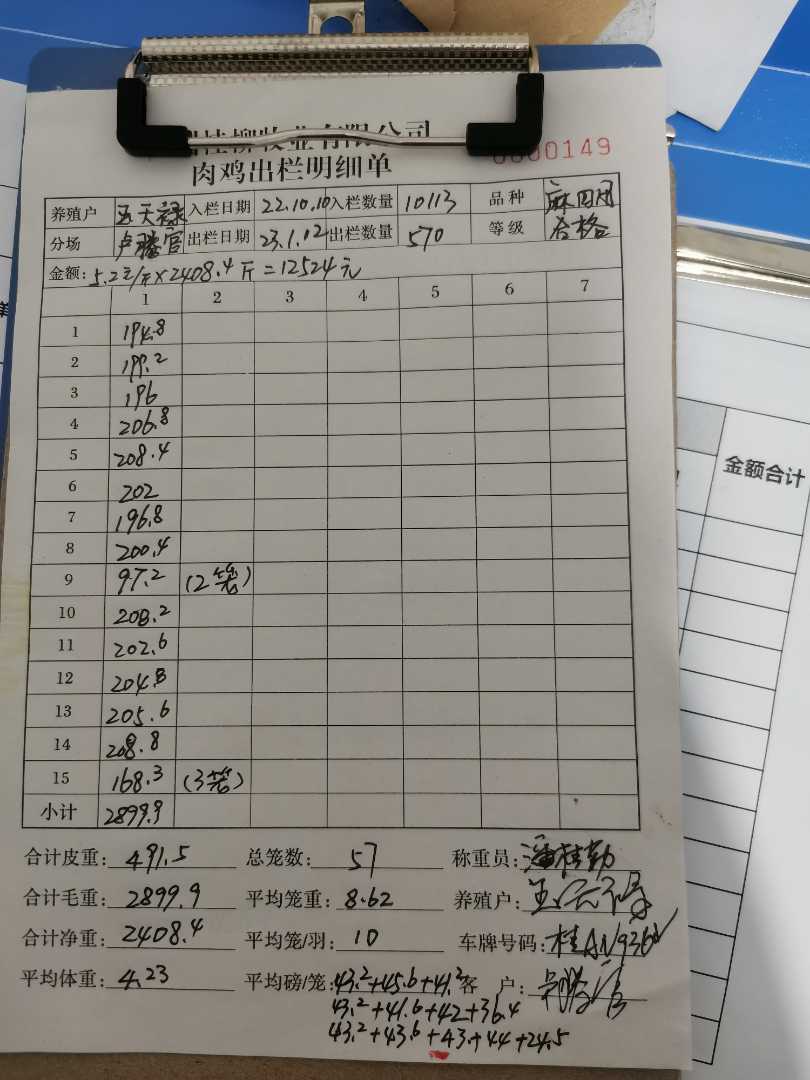 桂柳牧业有限公司
肉鸡出栏明细单
0000149
养殖户 王天禄 入栏日期 22.10.10 入栏数量 10113 品种
分场 卢腾官 出栏日期 23.1.12 出栏数量 570 等级 合格
金额: 5.2元/斤×2408.4斤=12524元
1 2 3 4 5 6 7
1 194.8
2 199.2
3 196
4 206.8
5 208.4
6 202
7 196.8
8 200.4
9 97.2 (2笼)
10 208.2
11 202.6
12 204.8
13 205.6
14 208.8
15 168.3 (3笼)
小计 2899.9
合计皮重: 491.5 总笼数: 57 称重员: 潘桂勤
合计毛重: 2899.9 平均笼重: 8.62 养殖户:
合计净重: 2408.4 平均笼/羽: 10 车牌号码:
平均体重: 4.23 平均磅/笼: 43.2+45.6+41.2 客 户:
43.2+41.6+42+36.4
43.2+43.6+43+44+24.5
金额合计